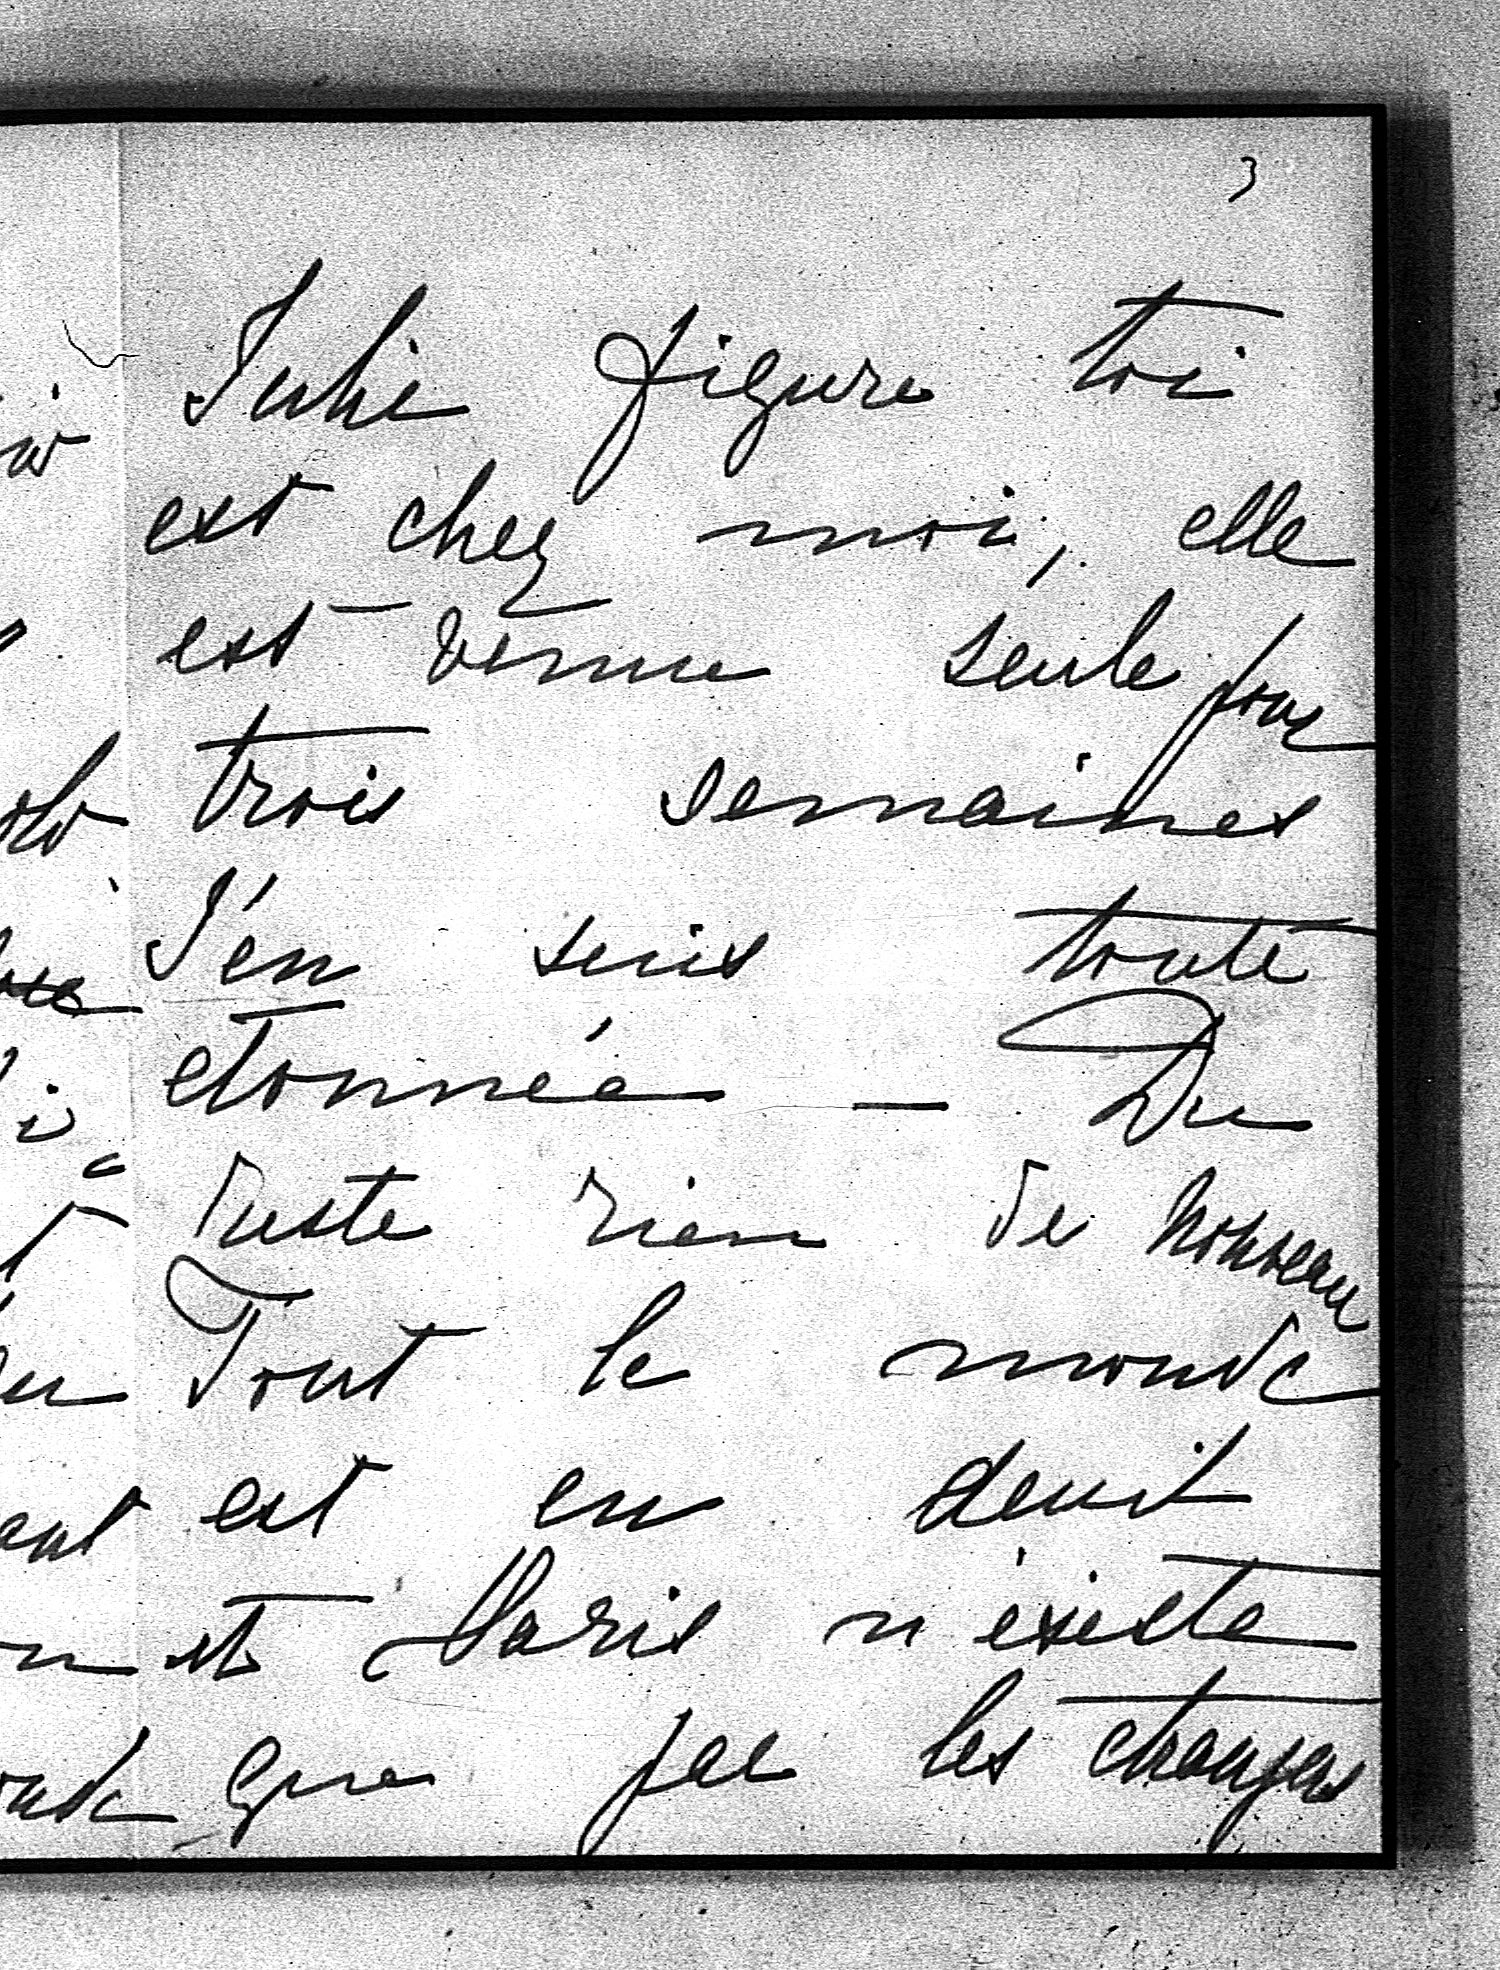 3
Julie figure toi
est chez moi, elle
est venue seule pour
trois semaines
J'en suis toute
etonnée — Du
reste rien de nouveau
Tout le monde
est en deuil
et Paris n'existe
que par les étrangers